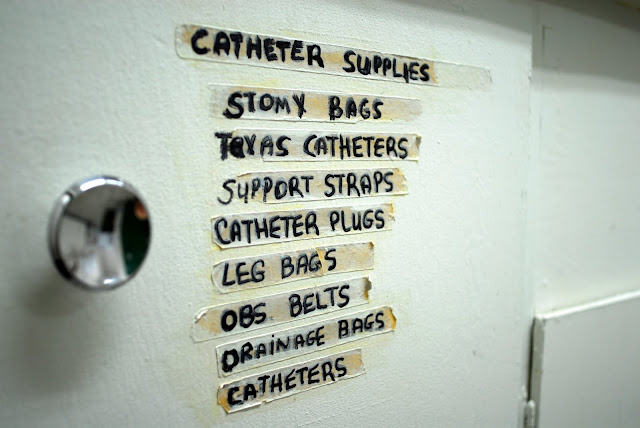 CATHETER SUPPLIES
STOMY BAGS
TEXAS CATHETERS
SUPPORT STRAPS
CATHETER PLUGS
LEG BAGS
OBS BELTS
DRAINAGE BAGS
CATHETERS